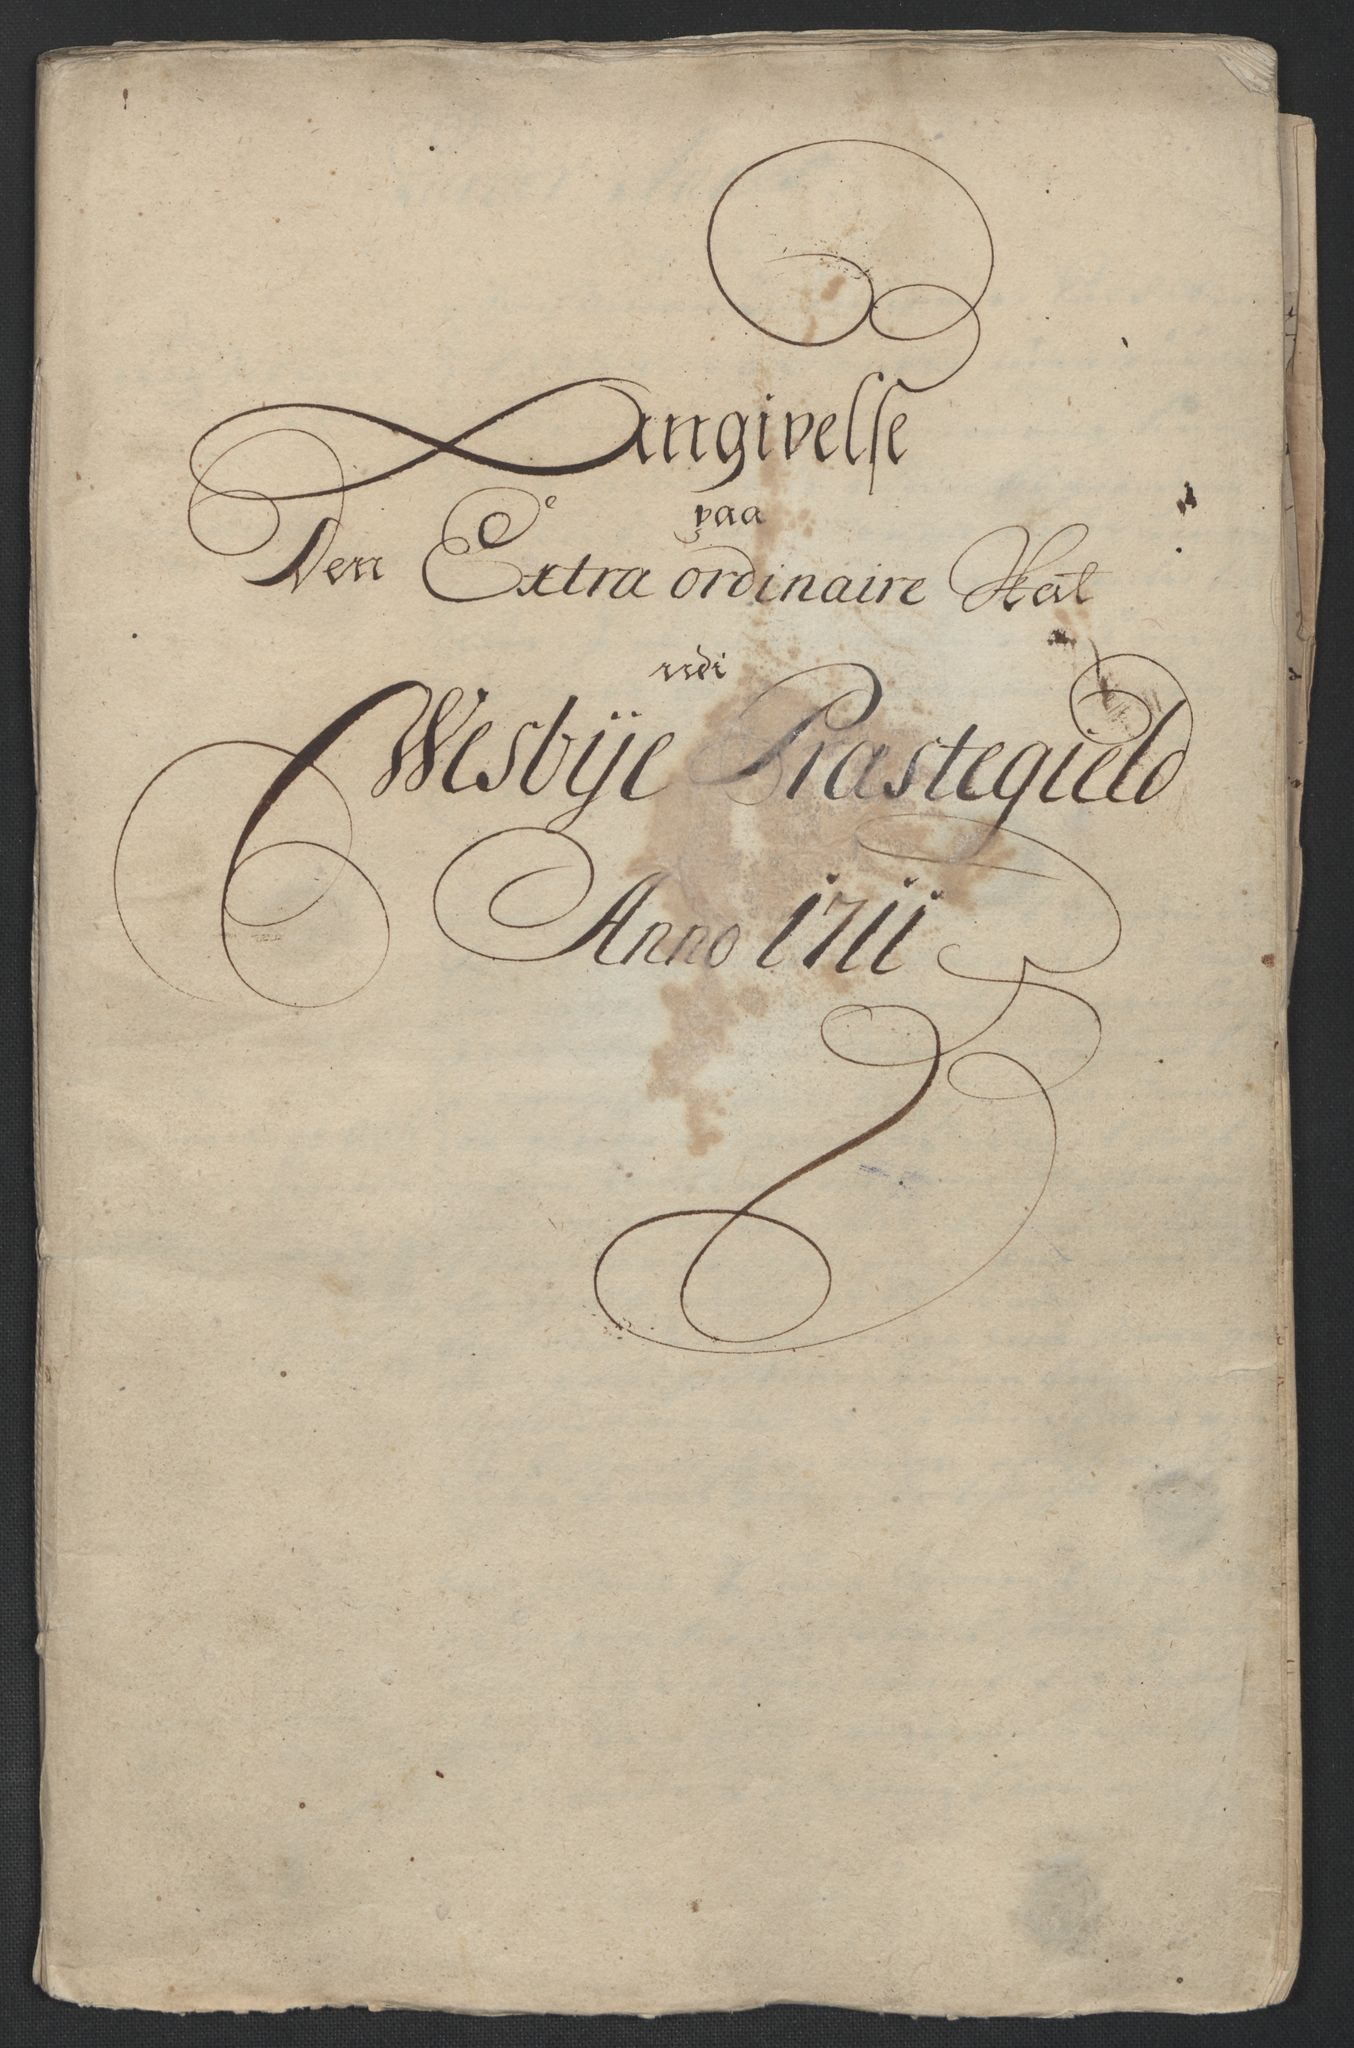 Angivelse
paa
Den Extra ordinaire Skat
udi
Wesbÿe Præstegield
Anno 1711